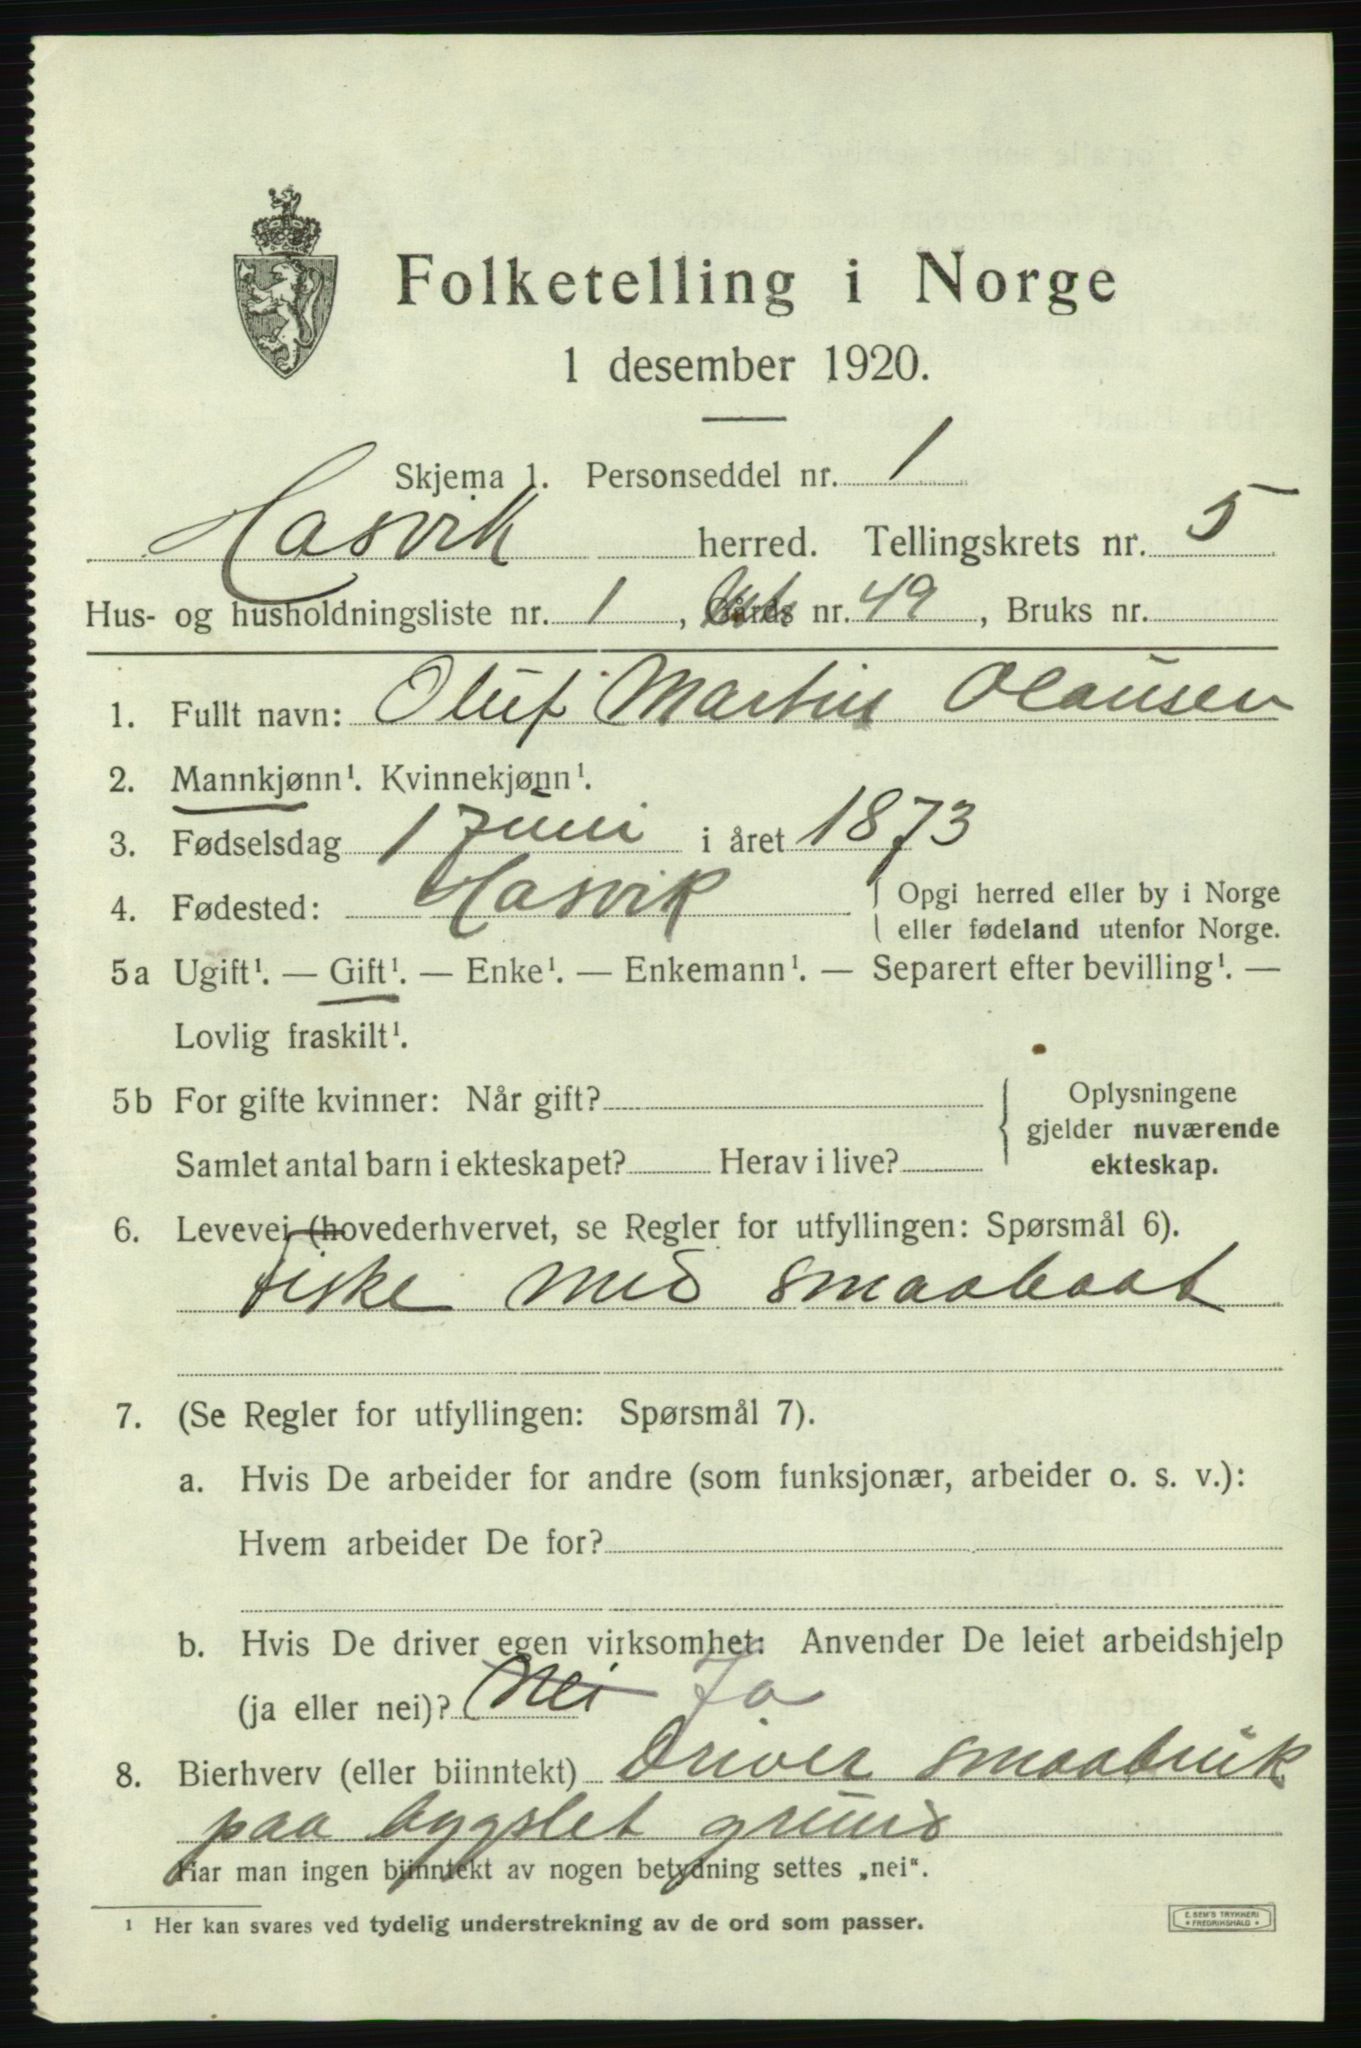 Folketelling i Norge
1 desember 1920.
Skjema 1. Personseddel nr. 1
Hasvik herred. Tellingskrets nr. 5
Hus- og husholdningsliste nr. 1, Gårds nr. 49, Bruks nr.
1. Fullt navn: Oluf Martin Olausen
2. Mannkjønn¹. Kvinnekjønn¹.
3. Fødselsdag 1 Juni i året 1873
4. Fødested: Hasvik Opgi herred eller by i Norge
eller fødeland utenfor Norge.
5a Ugift¹. — Gift¹. — Enke¹. — Enkemann¹. — Separert efter bevilling¹. —
Lovlig fraskilt¹.
5b For gifte kvinner: Når gift? Oplysningene
gjelder nuværende
Samlet antal barn i ekteskapet? Herav i live? ekteskap.
6. Levevei (hovederhvervet, se Regler for utfyllingen: Spørsmål 6).
Fiske med smaabaat
7. (Se Regler for utfyllingen: Spørsmål 7).
a. Hvis De arbeider for andre (som funksjonær, arbeider o. s. v.):
Hvem arbeider De for?
b. Hvis De driver egen virksomhet: Anvender De leiet arbeidshjelp
(ja eller nei)? Nei Ja
8. Bierhverv (eller biinntekt) Driver smaabruk
paa bygslet grund
Har man ingen biinntekt av nogen betydning settes „nei“.
¹ Her kan svares ved tydelig understrekning av de ord som passer.
E. SEM'S TRYKKERI
FREDRIKSHALD